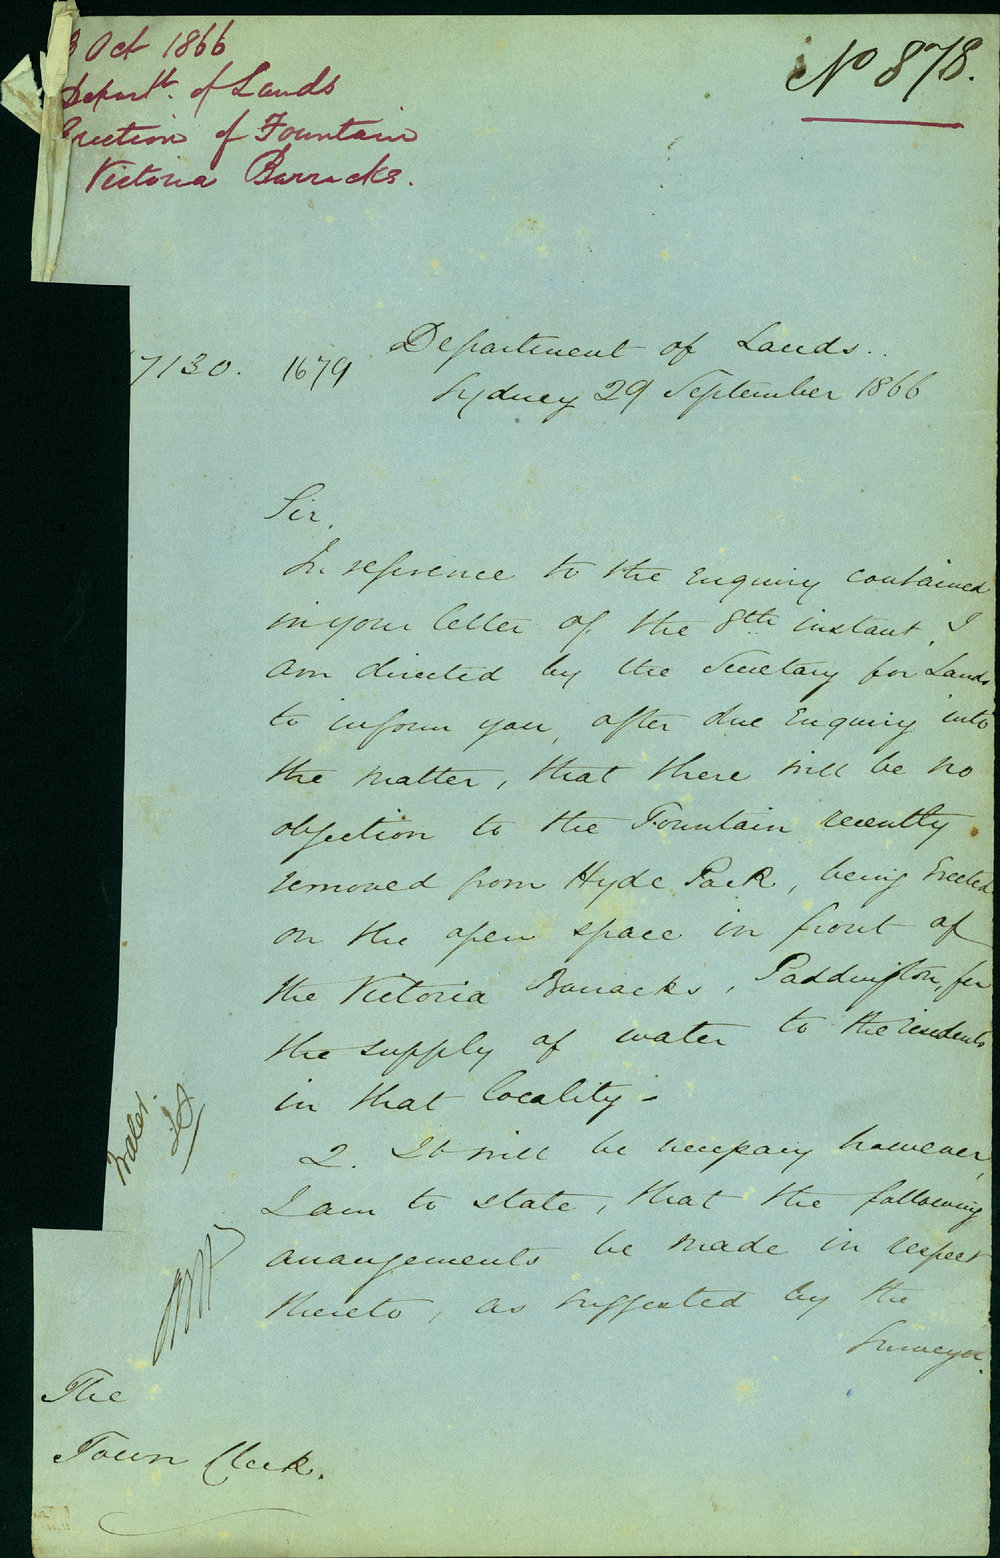 3 Oct 1866
Departt. of Lands
Erection of Fountain
Victoria Barracks.
No 878.
7130. 1679
Department of Lands..
Sydney 29 September 1866
Sir,
In reference to the Enquiry contained
in your letter of the 8th instant, I
am directed by the Secretary for Lands
to inform you, after due Enquiry into
the matter, that there will be no
objection to the Fountain recently
removed from Hyde Park, being Erected
on the open space in front of
the Victoria Barracks, Paddington, for
the supply of water to the residents
in that locality -
2. It will be necessary however,
I am to state, that the following
arrangements be made in respect
thereto, as suggested by the
Surveyor.
Water.
The
Town Clerk.